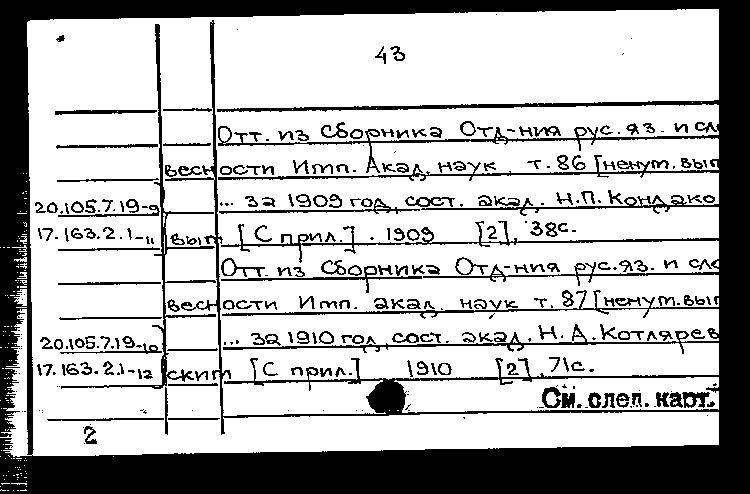 43
Отт. из Сборника Отд-ния рус. яз. и сло
весности Имп. Акад. наук, т. 86 [ненум. вып
20.105.7.19-9 ... за 1909 год, сост. акад. Н.П. Кондако
17.163.2.1-11 вым [С прил.]. 1909 [2], 38с.
Отт. из Сборника Отд-ния рус. яз. и сло
весности Имп. акад. наук т. 87 [ненум. вып
20.105.7.19-10 ... за 1910 год, сост. акад. Н.А. Котлярев
17.163.2.1-12 ским [С прил.] 1910 [2], 71с.
См. след. карт.
2